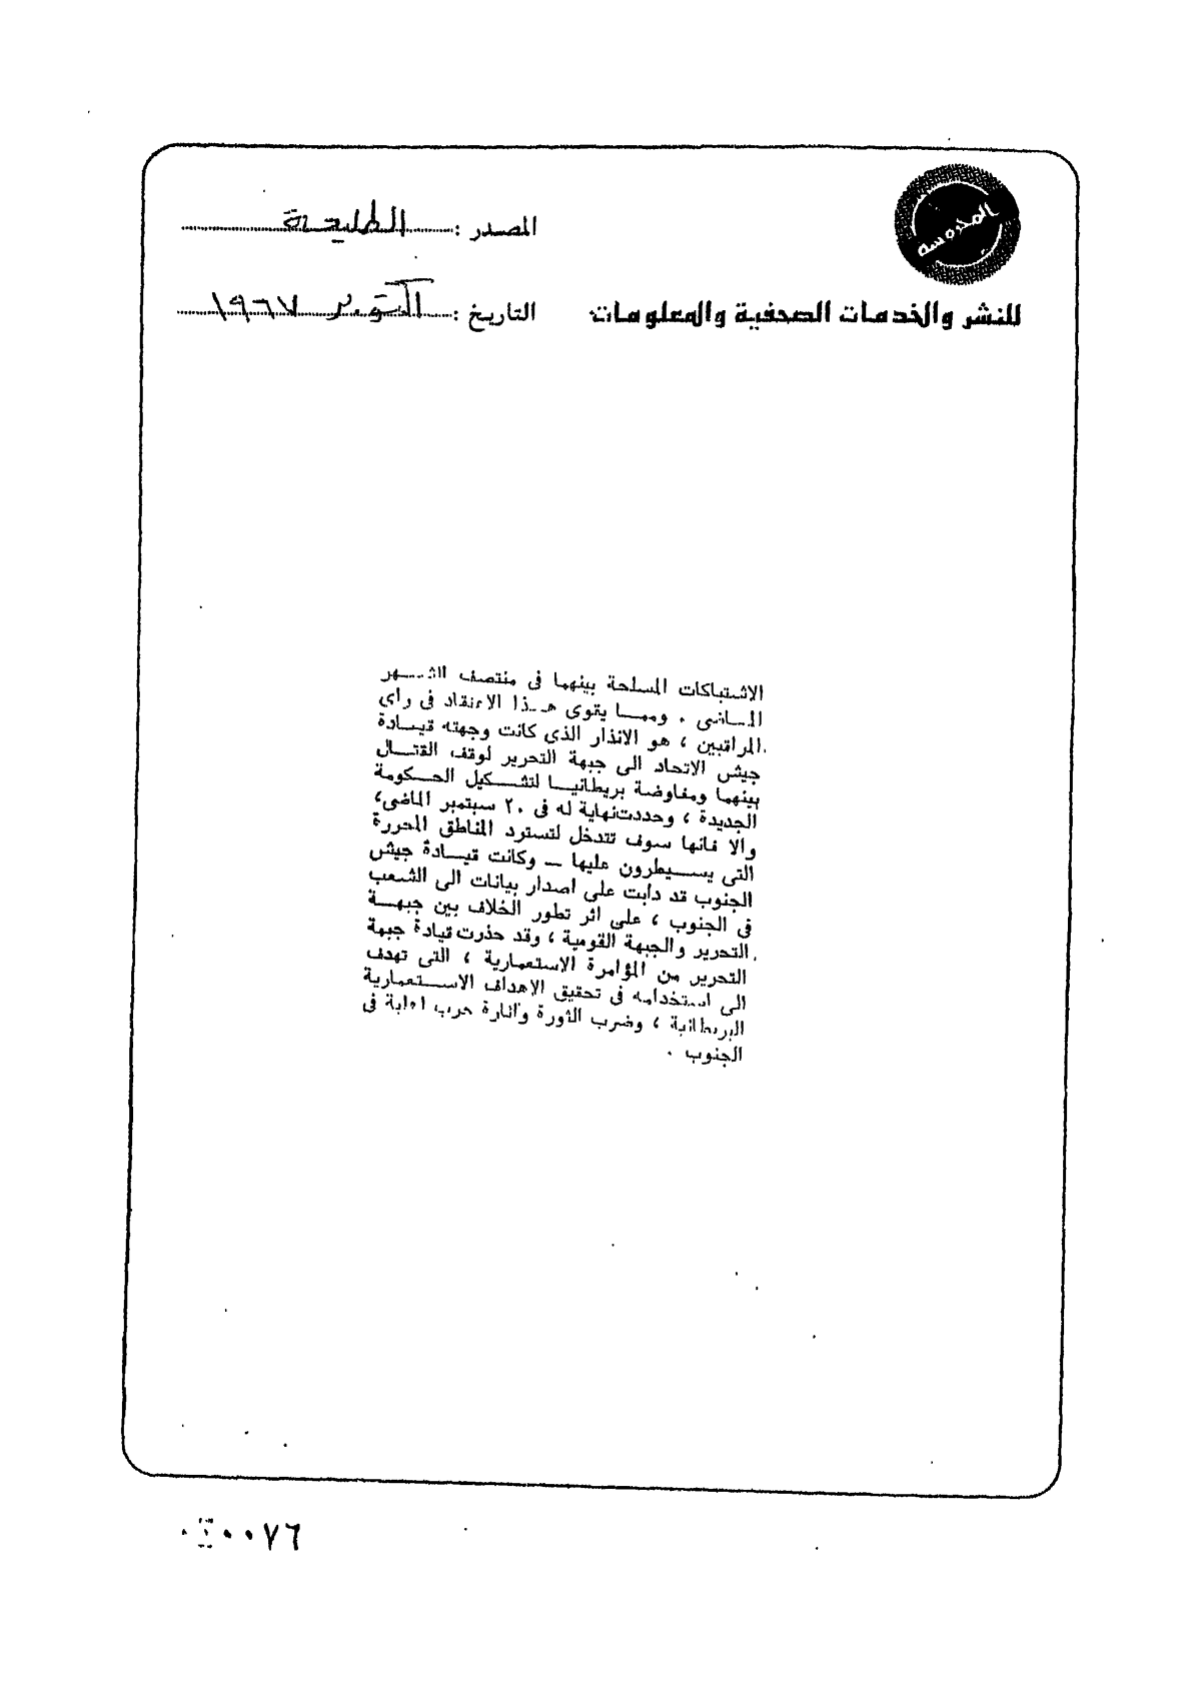 المحروسة
للنشر والخدمات الصحفية والمعلومات
المصدر : الطليعة
التاريخ : اكتوبر ١٩٦٧
الاشتباكات المسلحة بينهما فى منتصف الشهر
الماضى . ومما يقوى هذا الاعتقاد فى راى
المراقبين ، هو الانذار الذى كانت وجهته قيادة
جيش الاتحاد الى جبهة التحرير لوقف القتال
بينهما ومفاوضة بريطانيا لتشكيل الحكومة
الجديدة ، وحددت نهاية له فى ٢٠ سبتمبر الماضى،
والا فانها سوف تتدخل لتسترد المناطق المحررة
التى يسيطرون عليها — وكانت قيادة جيش
الجنوب قد دأبت على اصدار بيانات الى الشعب
فى الجنوب ، على اثر تطور الخلاف بين جبهة
التحرير والجبهة القومية ، وقد حذرت قيادة جبهة
التحرير من المؤامرة الاستعمارية ، التى تهدف
الى استخدامه فى تحقيق الاهداف الاستعمارية
البريطانية ، وضرب الثورة واثارة حرب اهلية فى
الجنوب .
٠٠٧٦